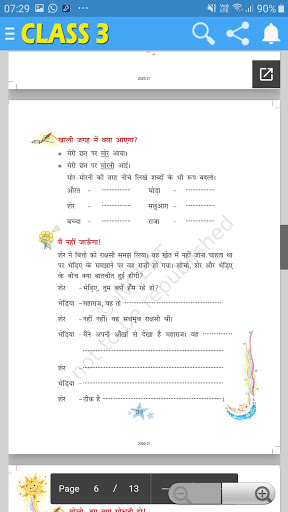 07:29
90%
CLASS 3
2020-21
खाली जगह में क्या आएगा?
• मेरी छत पर मोर आया।
• मेरी छत पर मोरनी आई।
मोर-मोरनी की तरह नीचे लिखे शब्दों के भी रूप बदलो।
औरत - ................ घोड़ा - ................
शेर - ................ मछुआरा - ................
बच्चा - ................ राजा - ................
मैं नहीं जाऊँगा!
शेर ने बित्तो को राक्षसी समझ लिया। वह खेत में नहीं जाना चाहता था
पर भेड़िए के समझाने पर वह राज़ी हो गया। सोचो, शेर और भेड़िए
के बीच क्या बातचीत हुई होगी?
शेर - भेड़िए, तुम क्यों हँस रहे हो?
भेड़िया - महाराज, वह तो ................
शेर - नहीं नहीं। वह सचमुच राक्षसी थी।
भेड़िया - मैंने अपनी आँखों से देखा है महाराज। वह ................
शेर ................
भेड़िया - ................
शेर - ठीक है ................
39
2020-21
not to be republished
Page 6 / 13